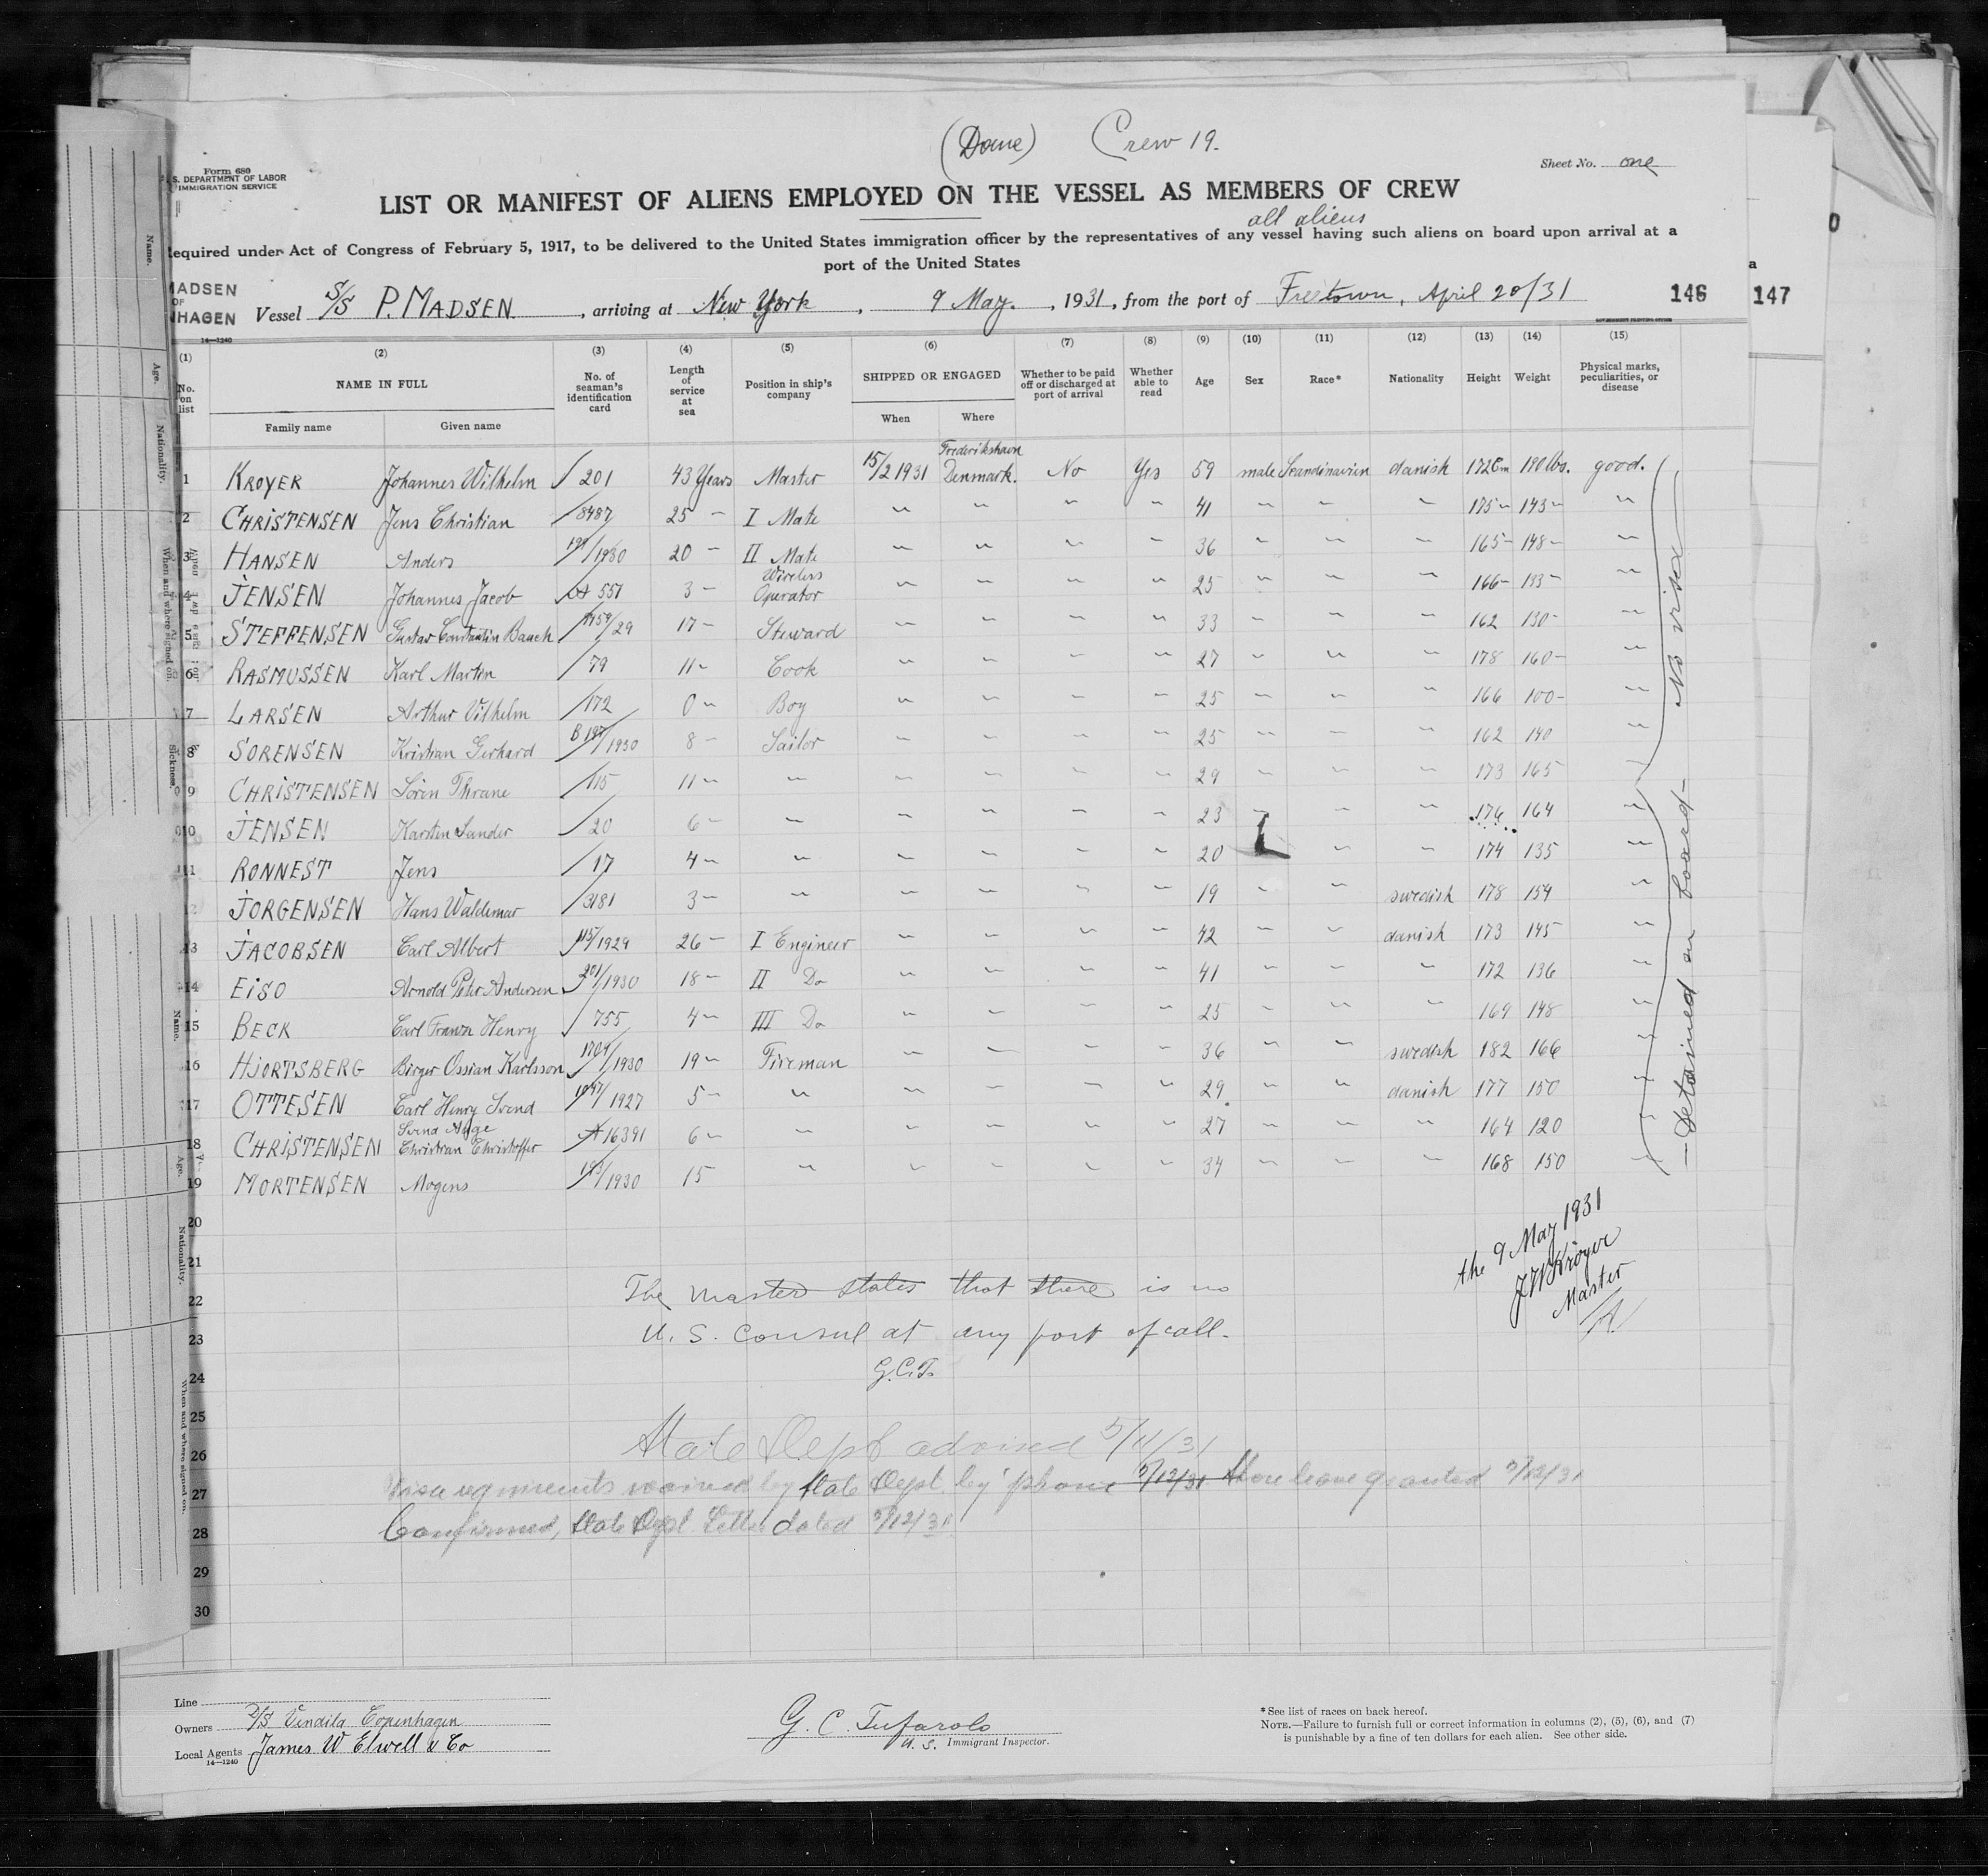 (Dane) (Crew 19.
Form 680
S. DEPARTMENT OF LABOR
IMMIGRATION SERVICE
Sheet No. one
LIST OR MANIFEST OF ALIENS EMPLOYED ON THE VESSEL AS MEMBERS OF CREW
all aliens
equired under Act of Congress of February 5, 1917, to be delivered to the United States immigration officer by the representatives of any vessel having such aliens on board upon arrival at a
port of the United States
MADSEN
OF
HAGEN
Vessel S/S P. MADSEN, arriving at New York, 9 May., 1931, from the port of Freetown, April 20/31 146 147
14—1240
GOVERNMENT PRINTING OFFICE
(1) (2) (3) (4) (5) (6) (7) (8) (9) (10) (11) (12) (13) (14) (15)
No. on list NAME IN FULL No. of seaman's identification card Length of service at sea Position in ship's company SHIPPED OR ENGAGED Whether to be paid off or discharged at port of arrival Whether able to read Age Sex Race* Nationality Height Weight Physical marks, peculiarities, or disease
Family name Given name When Where
1 KROYER Johannes Wilhelm / 201 43 Years Master 15/2 1931 Frederikshavn Denmark. No Yes 59 male Scandinavien danish 172 Cm 190 lbs. good.
2 CHRISTENSEN Jens Christian / 8487 25 " I Mate " " " " 41 " " " 175 " 143 " "
3 HANSEN Anders /1930 20 " II Mate " " " " 36 " " " 165 " 148 " "
4 JENSEN Johannes Jacob 551 3 " Wireless Operator " " " " 25 " " " 166 " 133 " "
5 STEFFENSEN Gustav Constantin Bauch /29 17 " Steward " " " " 33 " " " 162 130 " "
6 RASMUSSEN Karl Martin / 79 11 " Cook " " " " 27 " " " 178 160 " "
7 LARSEN Arthur Vilhelm / 172 0 " Boy " " " " 25 " " " 166 100 " "
8 SORENSEN Kristian Gerhard B 197/1930 8 " Sailor " " " " 25 " " " 162 140 "
9 CHRISTENSEN Sören Thrane / 115 11 " " " " " " 29 " " " 173 165 "
10 JENSEN Karsten Sander / 20 6 " " " " " " 23 " " " 176 164 "
11 RONNEST Jens / 17 4 " " " " " " 20 " " 174 135 "
12 JORGENSEN Hans Waldemar / 3181 3 " " " " " " 19 " " swedish 178 154 "
13 JACOBSEN Carl Albert 115/1929 26 " I Engineer " " " " 42 " " danish 173 145 "
14 EISO Arnold Peter Andersen 201/1930 18 " II Do " " " " 41 " " " 172 136 "
15 BECK Carl Frantz Henry / 755 4 " III Do " " " " 25 " " " 169 148 "
16 HJORTSBERG Birger Ossian Karlsson 1704/1930 19 " Fireman " " " " 36 " " swedish 182 166 "
17 OTTESEN Carl Henry Svend 1047/1927 5 " " " " " " 29 " " danish 177 150 "
18 CHRISTENSEN Svend Aage Christian Christoffer A 16391 6 " " " " " " 27 " " " 164 120 "
19 MORTENSEN Mogens 193/1930 15 " " " " " 34 " " " 168 150 "
20
21
22
23
24
25
26
27
28
29
30
No visa
—Detained on board—
the 9 May 1931
J W Kröyer
Master
The master states that there is no
U. S. Consul at any port of call.
G.C.T.
State Dept advised 5/11/31
Visa requirements waived by State Dept. by phone 5/12/31. Shore leave granted 5/12/31
Confirmed, State Dept. Letter dated 5/12/31
Line
Owners D/S Vendila Copenhagen
Local Agents James W Elwell & Co
14—1240
G. C. Tufarolo
U. S. Immigrant Inspector.
*See list of races on back hereof.
NOTE.—Failure to furnish full or correct information in columns (2), (5), (6), and (7)
is punishable by a fine of ten dollars for each alien. See other side.
Name.
Age.
Nationality.
When and where signed on.
Sickness.
Name.
Age.
Nationality.
When and where signed on.